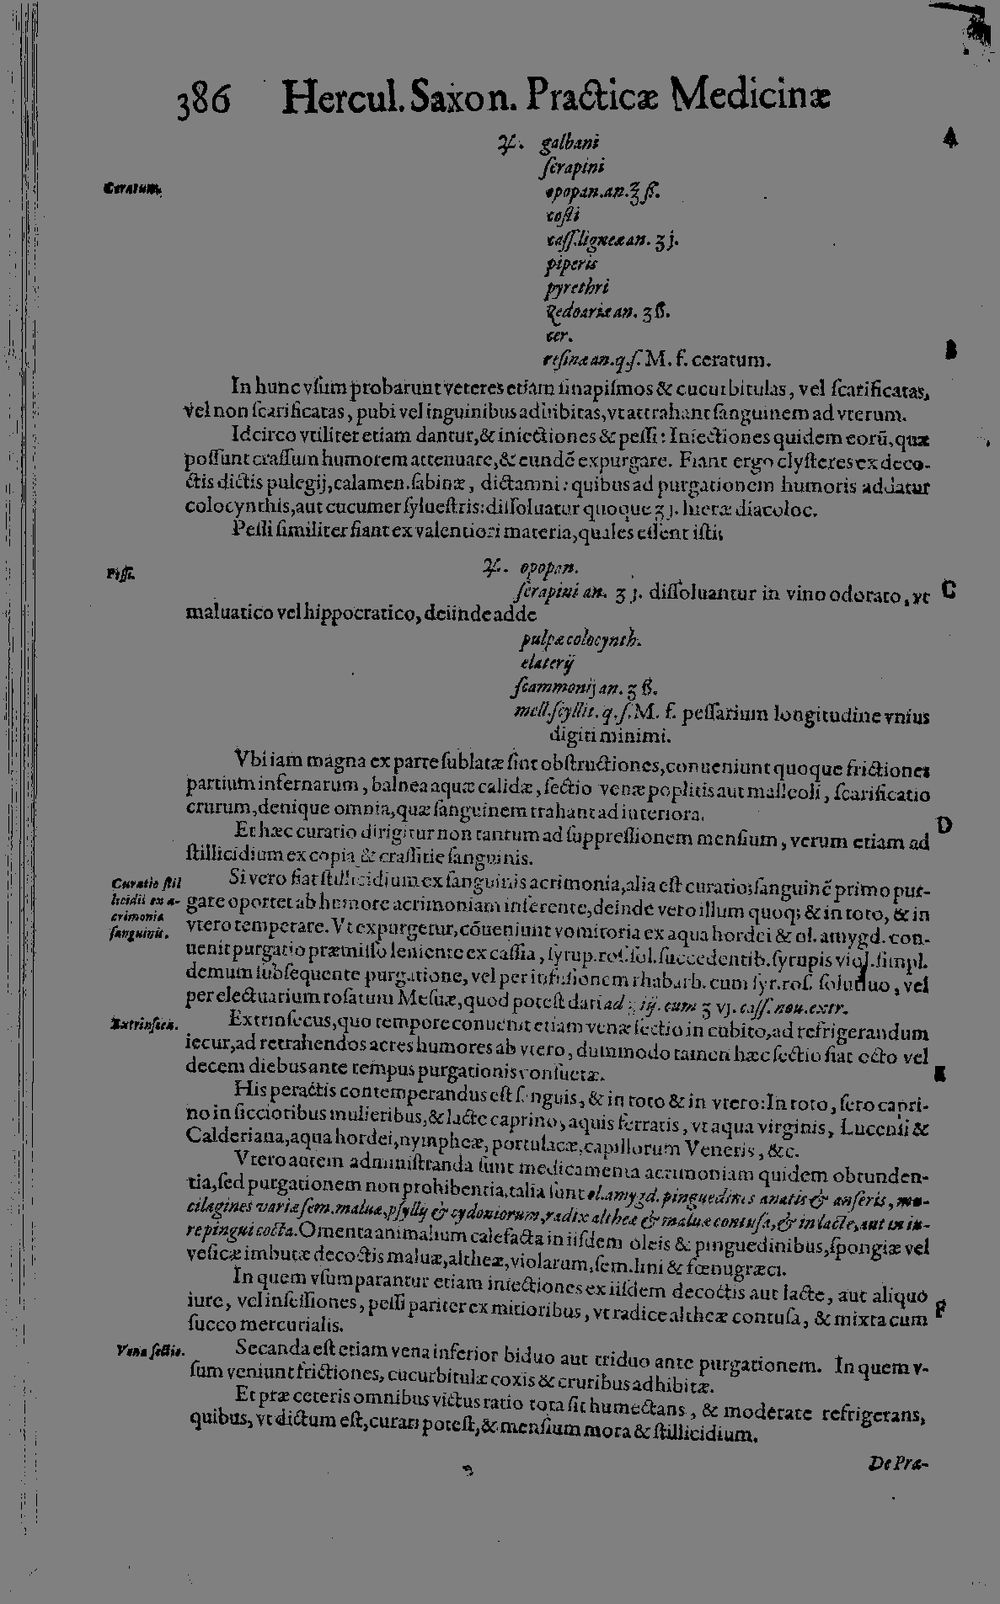 386 Hercul. Saxon. Practicæ Medicinæ
A
♃. galbani
ſerapini
Ceratum.
opopan. an. ℥ ß.
coſti
caſſ. ligneæ an. ʒ j.
piperis
pyrethri
zedoariæ an. ʒ ß.
cer.
B
reſinæ an. q. ſ. M. f. ceratum.
In hunc vſum probarunt veteres etiam ſinapiſmos & cucurbitulas, vel ſcarificatas,
vel non ſcarificatas, pubi vel inguinibus adhibitas, vt attrahant ſanguinem ad vterum.
Idcirco vtiliter etiam dantur, & iniectiones & peſſi: Iniectiones quidem eorũ, quæ
poſſunt craſſum humorem attenuare, & eundẽ expurgare. Fiant ergo clyſteres ex deco-
ctis dictis pulegij, calamen. ſabinæ, dictamni: quibus ad purgationem humoris addatur
colocynthis, aut cucumer ſylueſtris: diſſoluatur quoque ʒ j. hieræ diacoloc.
Peſſi ſimiliter fiant ex valentiori materia, quales eſſent iſti;
Peſſi.
♃. opopan.
C
ſerapini an. ʒ j. diſſoluantur in vino odorato, vt
maluatico vel hippocratico, deiinde adde
pulpæ colocynth.
elaterij
ſcammonij an. ʒ ß.
mell. ſcyllit. q. ſ. M. f. peſſarium longitudine vnius
digiti minimi.
Vbi iam magna ex parte ſublatæ ſint obſtructiones, conueniunt quoque frictiones
partium infernarum, balnea aquæ calidæ, ſectio venæ poplitis aut malleoli, ſcarificatio
crurum, denique omnia, quæ ſanguinem trahant ad inferiora.
D
Et hæc curatio dirigitur non tantum ad ſuppreſſionem menſium, verum etiam ad
ſtillicidium ex copia & craſſitie ſanguinis.
Curatio ſtil
licidii ex a-
crimonia
ſanguinis.
Si vero fiat ſtillicidium ex ſanguinis acrimonia, alia eſt curatio; ſanguinẽ primo pur-
gare oportet ab humore acrimoniam inferente, deinde vero illum quoq; & in toto, & in
vtero temperare. Vt expurgetur, cõueniunt vomitoria ex aqua hordei & ol. amygd. con-
uenit purgatio præmiſſo leniente ex caſſia, ſyrup. roſ. ſol. ſuccedentib. ſyrupis viol. ſimpl.
demum ſubſequente purgatione, vel per infuſionem rhabarb. cum ſyr. roſ. ſolutiuo, vel
per electuarium roſatum Meſuæ, quod poteſt dari ad ʒ iij. cum ʒ vj. caſſ. nou. extr.
Extrinſeca.
Extrinſecus, quo tempore conuenit etiam venæ ſectio in cubito, ad refrigerandum
iecur, ad retrahendos acres humores ab vtero, dummodo tamen hæc ſectio fiat octo vel
E
decem diebus ante tempus purgationis conſuetæ.
His peractis contemperandus eſt ſanguis, & in toto & in vtero: In toto, ſero capri-
no in ſiccioribus mulieribus, & lacte caprino, aquis ferratis, vt aqua virginis, Lucenſi &
Calderiana, aqua hordei, nympheæ, portulacæ, capillorum Veneris, &c.
Vtero autem adminiſtranda ſunt medicamenta acrimoniam quidem obtunden-
tia, ſed purgationem non prohibentia, talia ſunt ol. amygd. pinguedines anatis & anſeris, mu-
cilagines variæ ſem. maluæ, pſylly & cydoniorum, radix altheæ & maluæ contuſa, & in lacte, aut in iu-
re pingui cocta. Omenta animalium calefacta in iiſdem oleis & pinguedinibus, ſpongiæ vel
veſicæ imbutæ decoctis maluæ, altheæ, violarum, ſem. lini & fœnugræci.
In quem vſum parantur etiam iniectiones ex iiſdem decoctis aut lacte, aut aliquo
F
iure, vel inſeſſiones, peſſi pariter ex mitioribus, vt radice altheæ contuſa, & mixta cum
ſucco mercurialis.
Vena ſectio.
Secanda eſt etiam vena inferior biduo aut triduo ante purgationem. In quem v-
ſum veniunt frictiones, cucurbitulæ coxis & cruribus adhibitæ.
Et præ ceteris omnibus victus ratio tota ſit humectans, & moderate refrigerans,
quibus, vt dictum eſt, curari poteſt, & menſium mora & ſtillicidium.
De Præ-